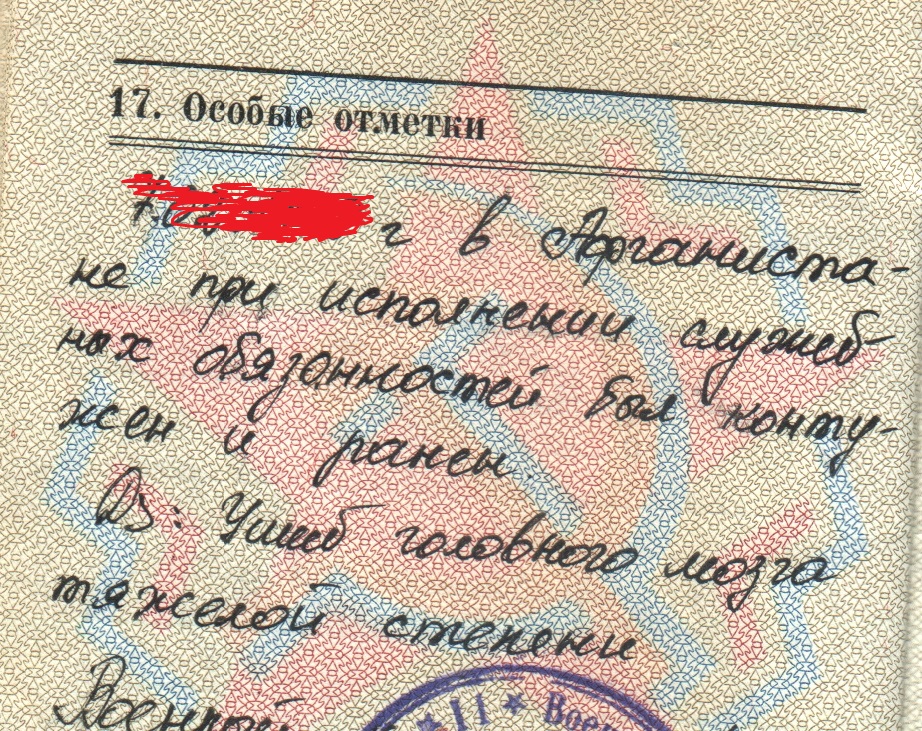 17. Особые отметки
г в Афганиста-
не при исполнении служеб-
ных обязанностей былконту-
жен и ранен.
Ds: Ушиб головного мозга
тяжелой степени
Военной
★ II ★ Воен